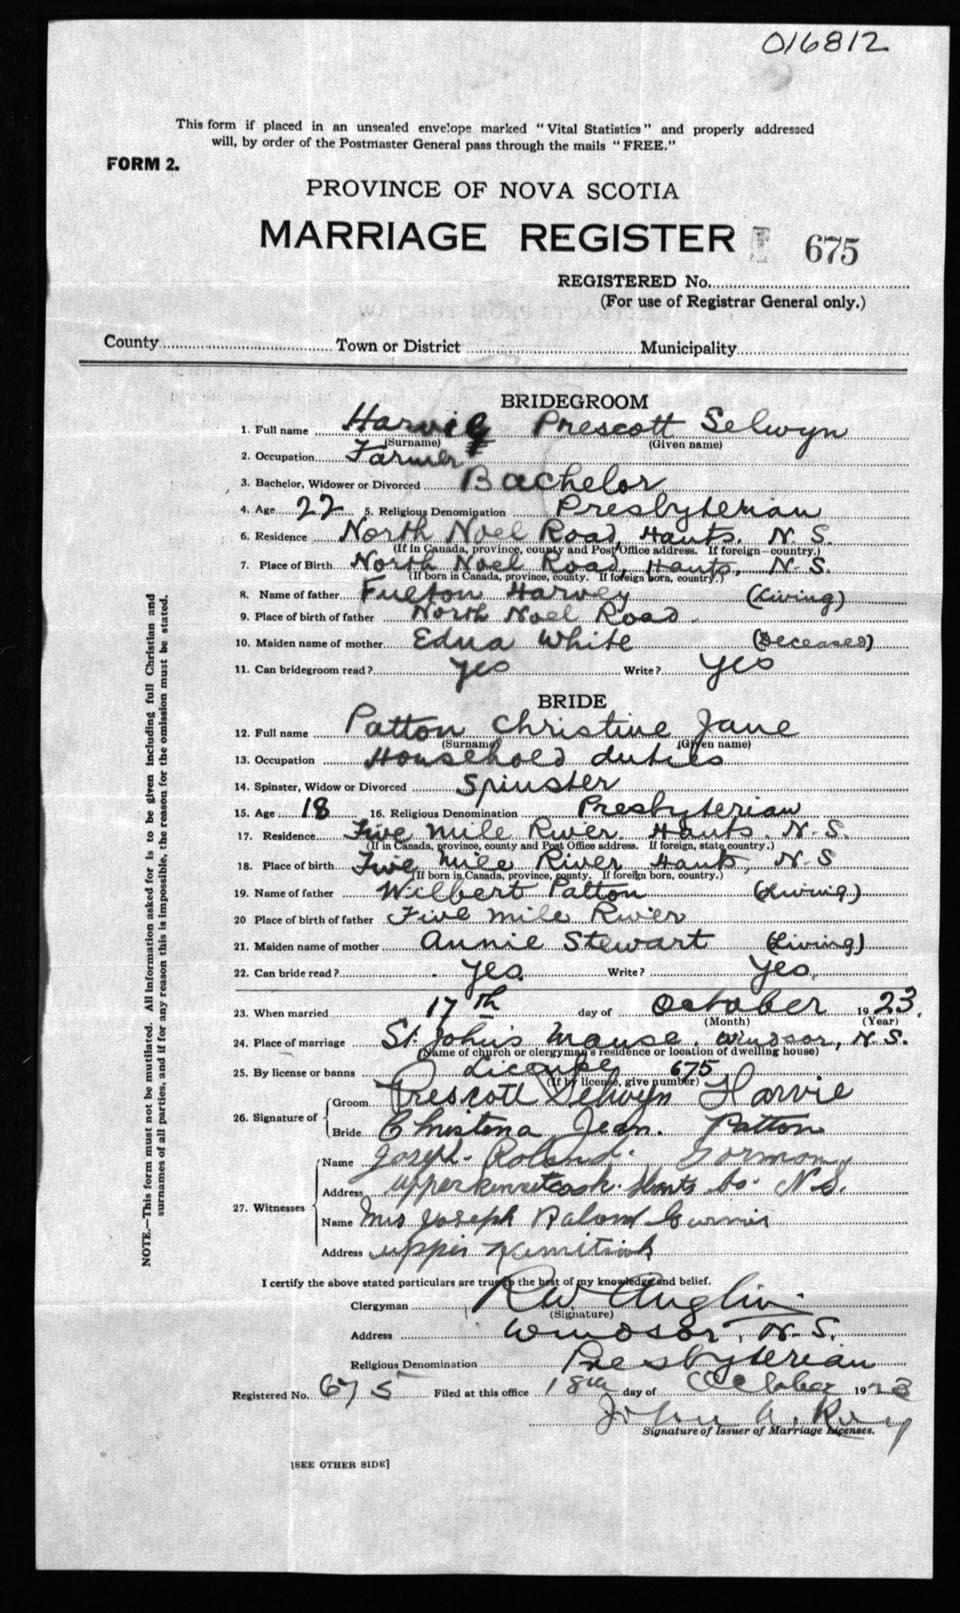 016812
This form if placed in an unsealed envelope marked "Vital Statistics" and properly addressed
will, by order of the Postmaster General pass through the mails "FREE."
FORM 2.
PROVINCE OF NOVA SCOTIA
MARRIAGE REGISTER 675
REGISTERED No.
(For use of Registrar General only.)
County Town or District Municipality
BRIDEGROOM
1. Full name Harvie Prescott Selwyn
(Surname) (Given name)
2. Occupation Farmer
3. Bachelor, Widower or Divorced Bachelor
4. Age 22 5. Religious Denomination Presbyterian
6. Residence North Noel Road, Hants. N. S.
(If in Canada, province, county and Post Office address. If foreign—country.)
7. Place of Birth North Noel Road, Hants, N. S.
(If born in Canada, province, county. If foreign born, country.)
8. Name of father Fulton Harvey (Living)
9. Place of birth of father North Noel Road.
10. Maiden name of mother Edna White (Deceased)
11. Can bridegroom read? Yes Write? Yes
BRIDE
12. Full name Patton Christine Jane
(Surname) (Given name)
13. Occupation Household duties
14. Spinster, Widow or Divorced Spinster
15. Age 18 16. Religious Denomination Presbyterian
17. Residence Five Mile River. Hants. N. S.
(If in Canada, province, county and Post Office address. If foreign, state country.)
18. Place of birth Five Mile River Hants, N. S
(If born in Canada, province, county. If foreign born, country.)
19. Name of father Wilbert Patton (Living)
20 Place of birth of father Five Mile River
21. Maiden name of mother Annie Stewart (Living)
22. Can bride read? Yes. Write? Yes.
23. When married 17th day of October 1923.
(Month) (Year)
24. Place of marriage St. John's Manse. Windsor, N. S.
(Name of church or clergyman's residence or location of dwelling house)
25. By license or banns License 675
(If by license, give number)
26. Signature of Groom Prescott Selwyn Harvie
Bride Christena Jean. Patton
27. Witnesses Name Joseph. Roland.
Address Upper Hants Co. N.S.
Name Mrs Joseph
Address Upper
I certify the above stated particulars are true to the best of my knowledge and belief.
Clergyman R W Anglin
(Signature)
Address Windsor, N. S.
Religious Denomination Presbyterian
Registered No. 675 Filed at this office 18th day of October 1923
John A.
Signature of Issuer of Marriage Licenses.
[SEE OTHER SIDE]
NOTE.—This form must not be mutilated. All information asked for is to be given including full Christian and
surnames of all parties, and if for any reason this is impossible, the reason for the omission must be stated.